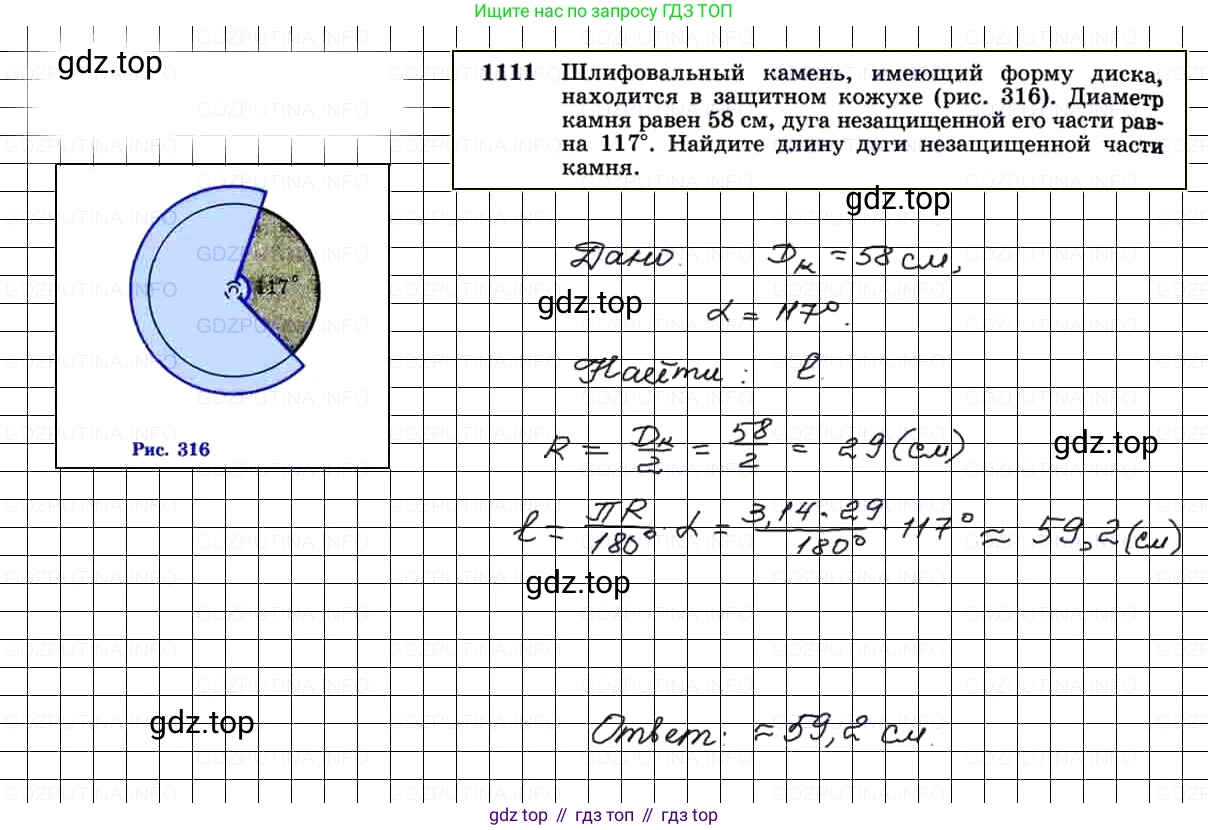 Ищите нас по запросу ГДЗ ТОП
gdz.top
1111 Шлифовальный камень, имеющий форму диска,
находится в защитном кожухе (рис. 316). Диаметр
камня равен 58 см, дуга незащищенной его части рав-
на 117°. Найдите длину дуги незащищенной части
камня.
gdz.top
Дано: Dк = 58 см,
gdz.top
α = 117°.
117°
Найти: l.
Рис. 316
R = Dк/2 = 58/2 = 29 (см)
gdz.top
l = πR/180° · α = 3,14·29/180° · 117° ≈ 59,2 (см)
gdz.top
gdz.top
Ответ: ≈ 59,2 см.
GDZPUTINA.INFO
gdz top // гдз топ // гдз top